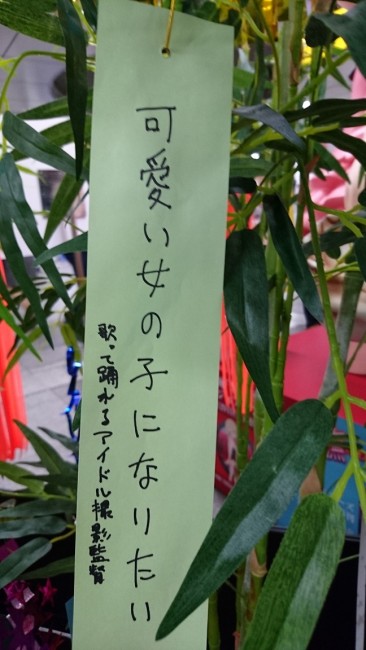 可愛い女の子になりたい
歌って踊れるアイドル撮影監督